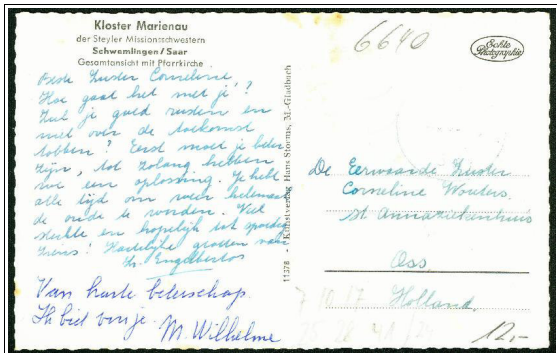 Kloster Marienau
der Steyler Missionsschwestern
Schwemlingen/Saar
Gesamtansicht mit Pfarrkirche
6640
Echte
Photographie
Beste Zuster Corneline
Hoe gaat het met je?
Zul je goed rusten en
niet over de toekomst
tobben? Eerst moet je beter
zijn, tot zolang hebben
we een oplossing. Je hebt
alle tijd om weer helemaal
de oude te worden. Veel
sterkte en hopelijk tot spoedig
ziens! Hartelijke groeten van
Zr. Engelbertos
Van harte beterschap.
Ik bid voor je. M. Wilhelme
11378 - Kunstverlag Hans Storms, M.-Gladbach
De Eerwaarde Zuster
Corneline Wouters.
St Annaziekenhuis
Oss
Holland.
12,-